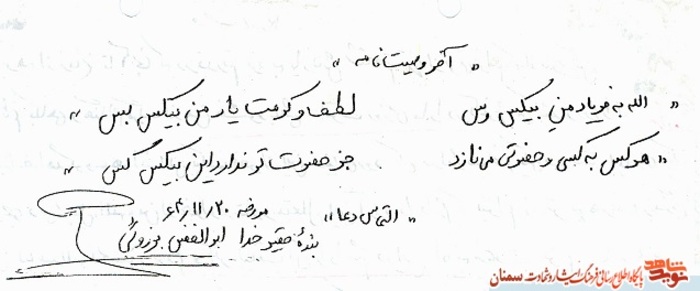 « آخر وصیت نامه »
« الله به فریاد من بیکس رس لطف و کرمت یار من بیکس بس »
« هر کس به کسی و حضرتی می نازد جز حضرت تو ندارد این بیکس کس »
« التماس دعا » مورخه ۶۴/۱۱/۲۰
بندهٔ حقیر خدا ابوالفضل
نوید شاهد
پایگاه اطلاع رسانی فرهنگ ایثار و شهادت سمنان